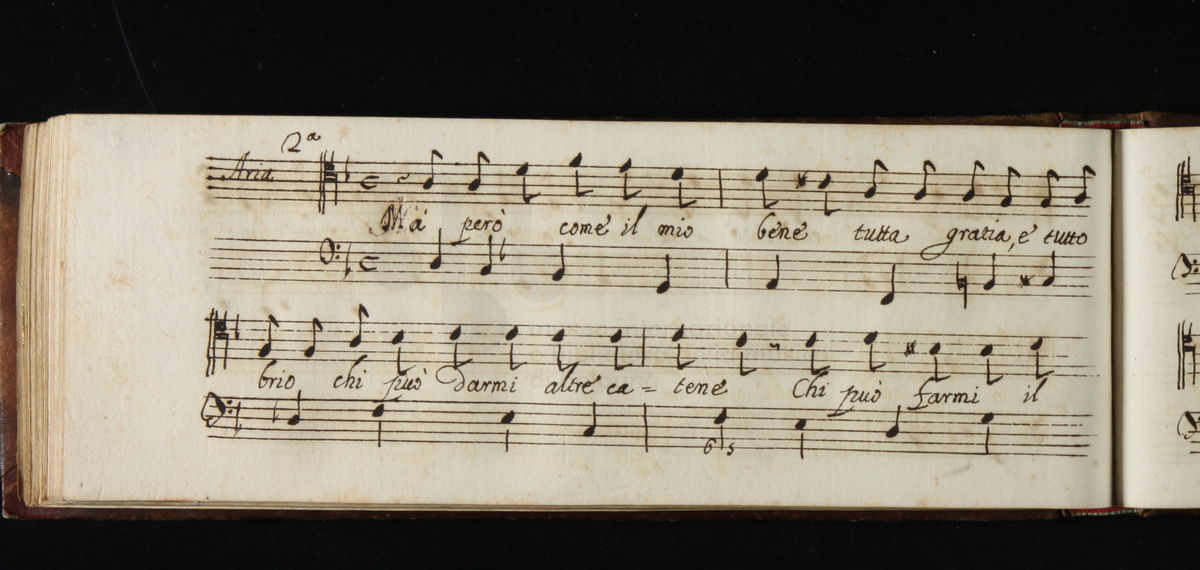 Aria 2ª
Mà però come il mio bene tutta gratia, e tutto
brio chi può darmi altre ca = tene Chi può farmi il
6 5